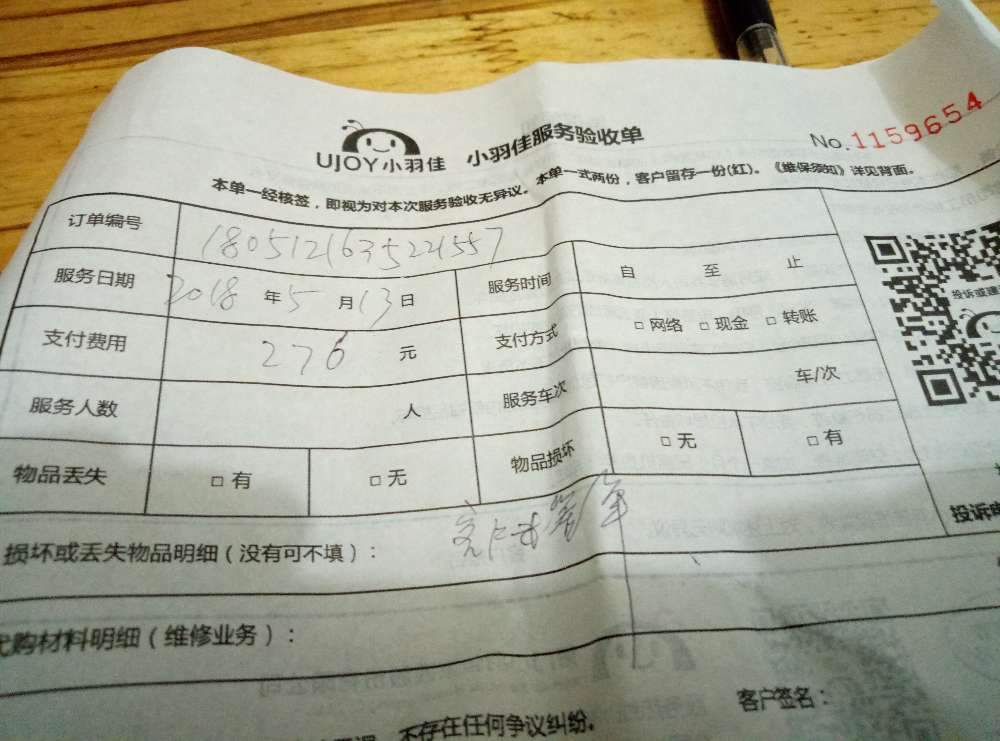 UJOY小羽佳 小羽佳服务验收单 No.1159654
本单一经核签，即视为对本次服务验收无异议。本单一式两份，客户留存一份(红)。《维保须知》详见背面。
订单编号 1805121635221557
服务日期 2018 年 5 月 13 日 服务时间 自 至 止
支付费用 276 元 支付方式 □ 网络 □ 现金 □ 转账
服务人数 人 服务车次 车/次
物品丢失 □ 有 □ 无 物品损坏 □ 无 □ 有
损坏或丢失物品明细（没有可不填）：
购材料明细（维修业务）：
客户签名：
不存在任何争议纠纷。
投诉或建
投诉